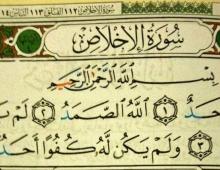 سورة الإخلاص ١١٢ الفلق ١١٣ الناس ١١٤
سُورَةُ الإِخْلَاصِ
بِسْمِ اللَّهِ الرَّحْمَٰنِ الرَّحِيمِ
حَدٌ ١ اللَّهُ الصَّمَدُ ٢ لَمْ يَ
٣ وَلَمْ يَكُن لَّهُ كُفُوًا أَحَدٌ